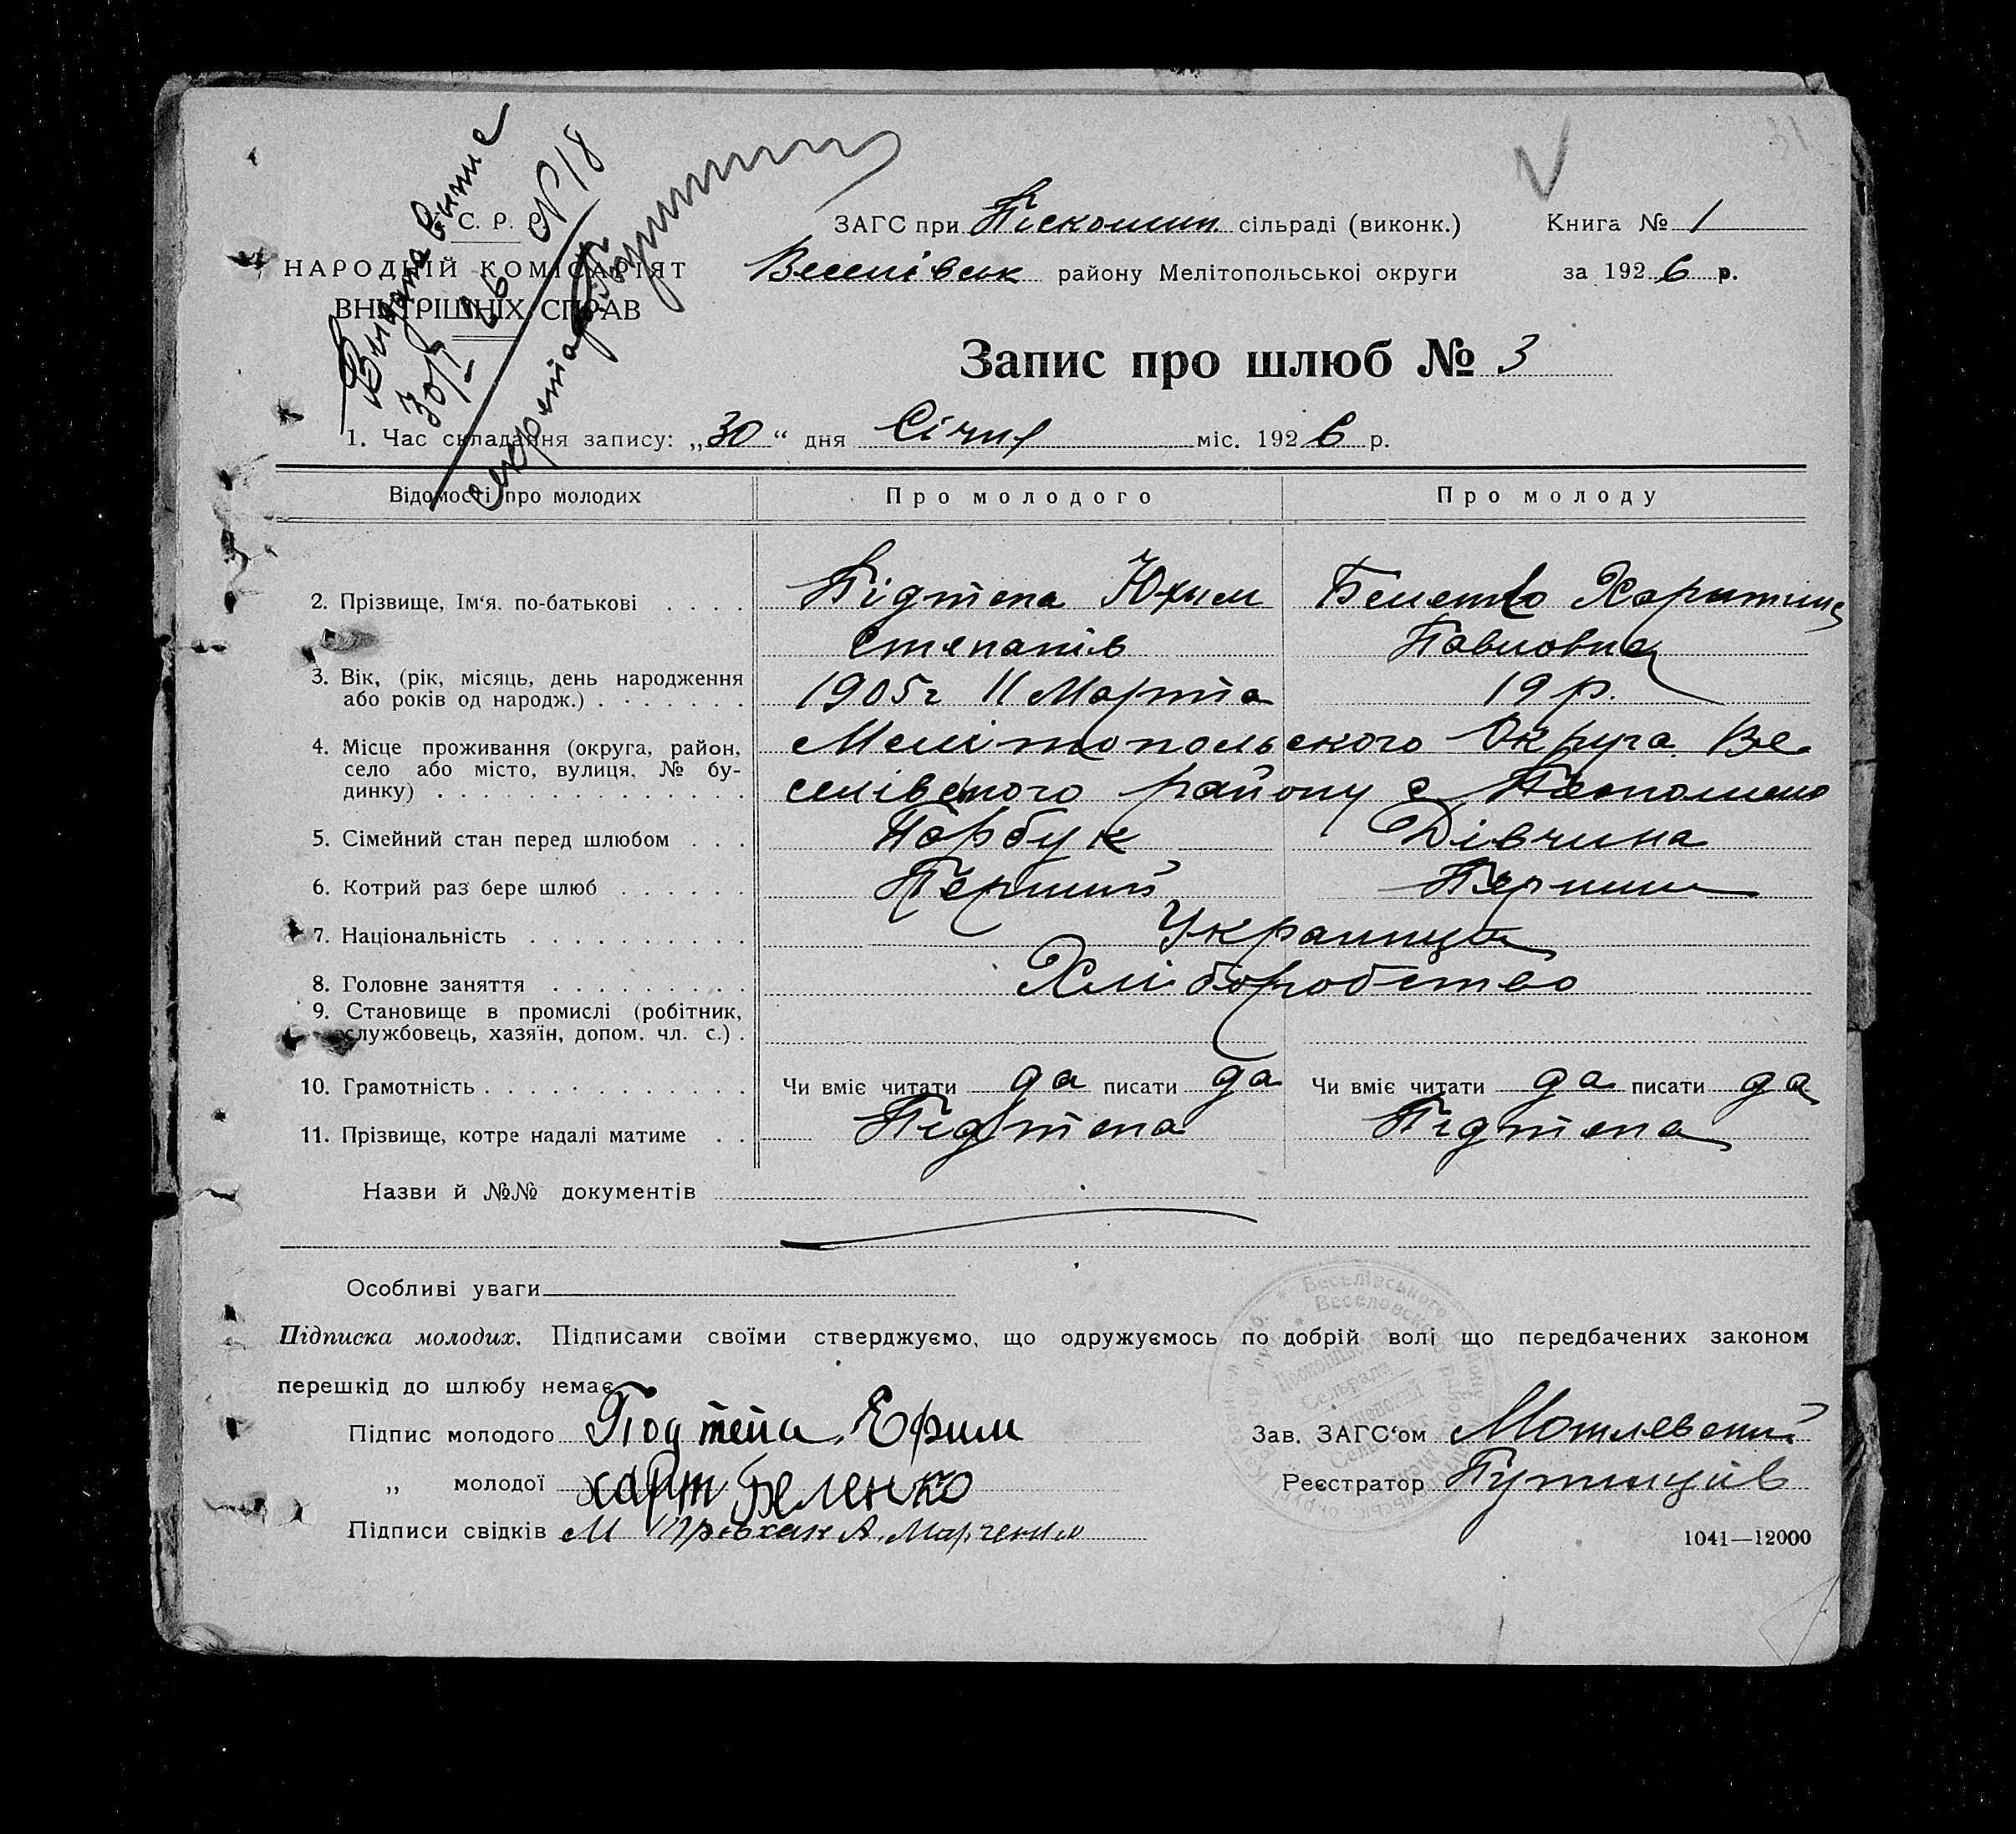 31
Видана выпис
30/I 26 № 18
секретарь
У. С. Р. Р.
НАРОДНІЙ КОМІСАРІЯТ
ВНУТРІШНІХ СПРАВ
ЗАГС при Піскошин сільраді (виконк.) Книга № 1
Веселівськ району Мелітопольської округи за 1926 р.
Запис про шлюб № 3
1. Час складання запису: „30“ дня Січня міс. 1926 р.
Відомості про молодих Про молодого Про молоду
2. Прізвище, Ім‘я. по-батькові . . . . Підтепа Юхим Беленко Харитина
Степанів Павловна
3. Вік, (рік, місяць, день народження
або років од народж.) . . . . . . . 1905 г 11 Марта 19 р.
4. Місце проживання (округа, район, Мелітопольского Округа Ве
село або місто, вулиця, № бу-
динку) . . . . . . . . . . . . . . селівського району с
5. Сімейний стан перед шлюбом . . . Парубук Дівчина
6. Котрий раз бере шлюб . . . . . . Перший Перший
7. Національність . . . . . . . . . . Українци
8. Головне заняття . . . . . . . . . Хліборобство
9. Становище в промислі (робітник,
службовець, хазяїн, допом. чл. с.) .
10. Грамотність . . . . . . . . . . . . Чи вміє читати да писати да Чи вміє читати да писати да
11. Прізвище, котре надалі матиме . . Підтепа Підтепа
Назви й №№ документів
Особливі уваги
Підписка молодих. Підписами своїми стверджуємо, що одружуємось по добрій волі що передбачених законом
перешкід до шлюбу немає
Підпис молодого Подтепа Ефим Зав. ЗАГС‘ом
„ молодої харт Беленко Реєстратор
Підписи свідків М А. Марченко
1041—12000
Веселівського району
Веселовского района
Сельрада
Сельсовет